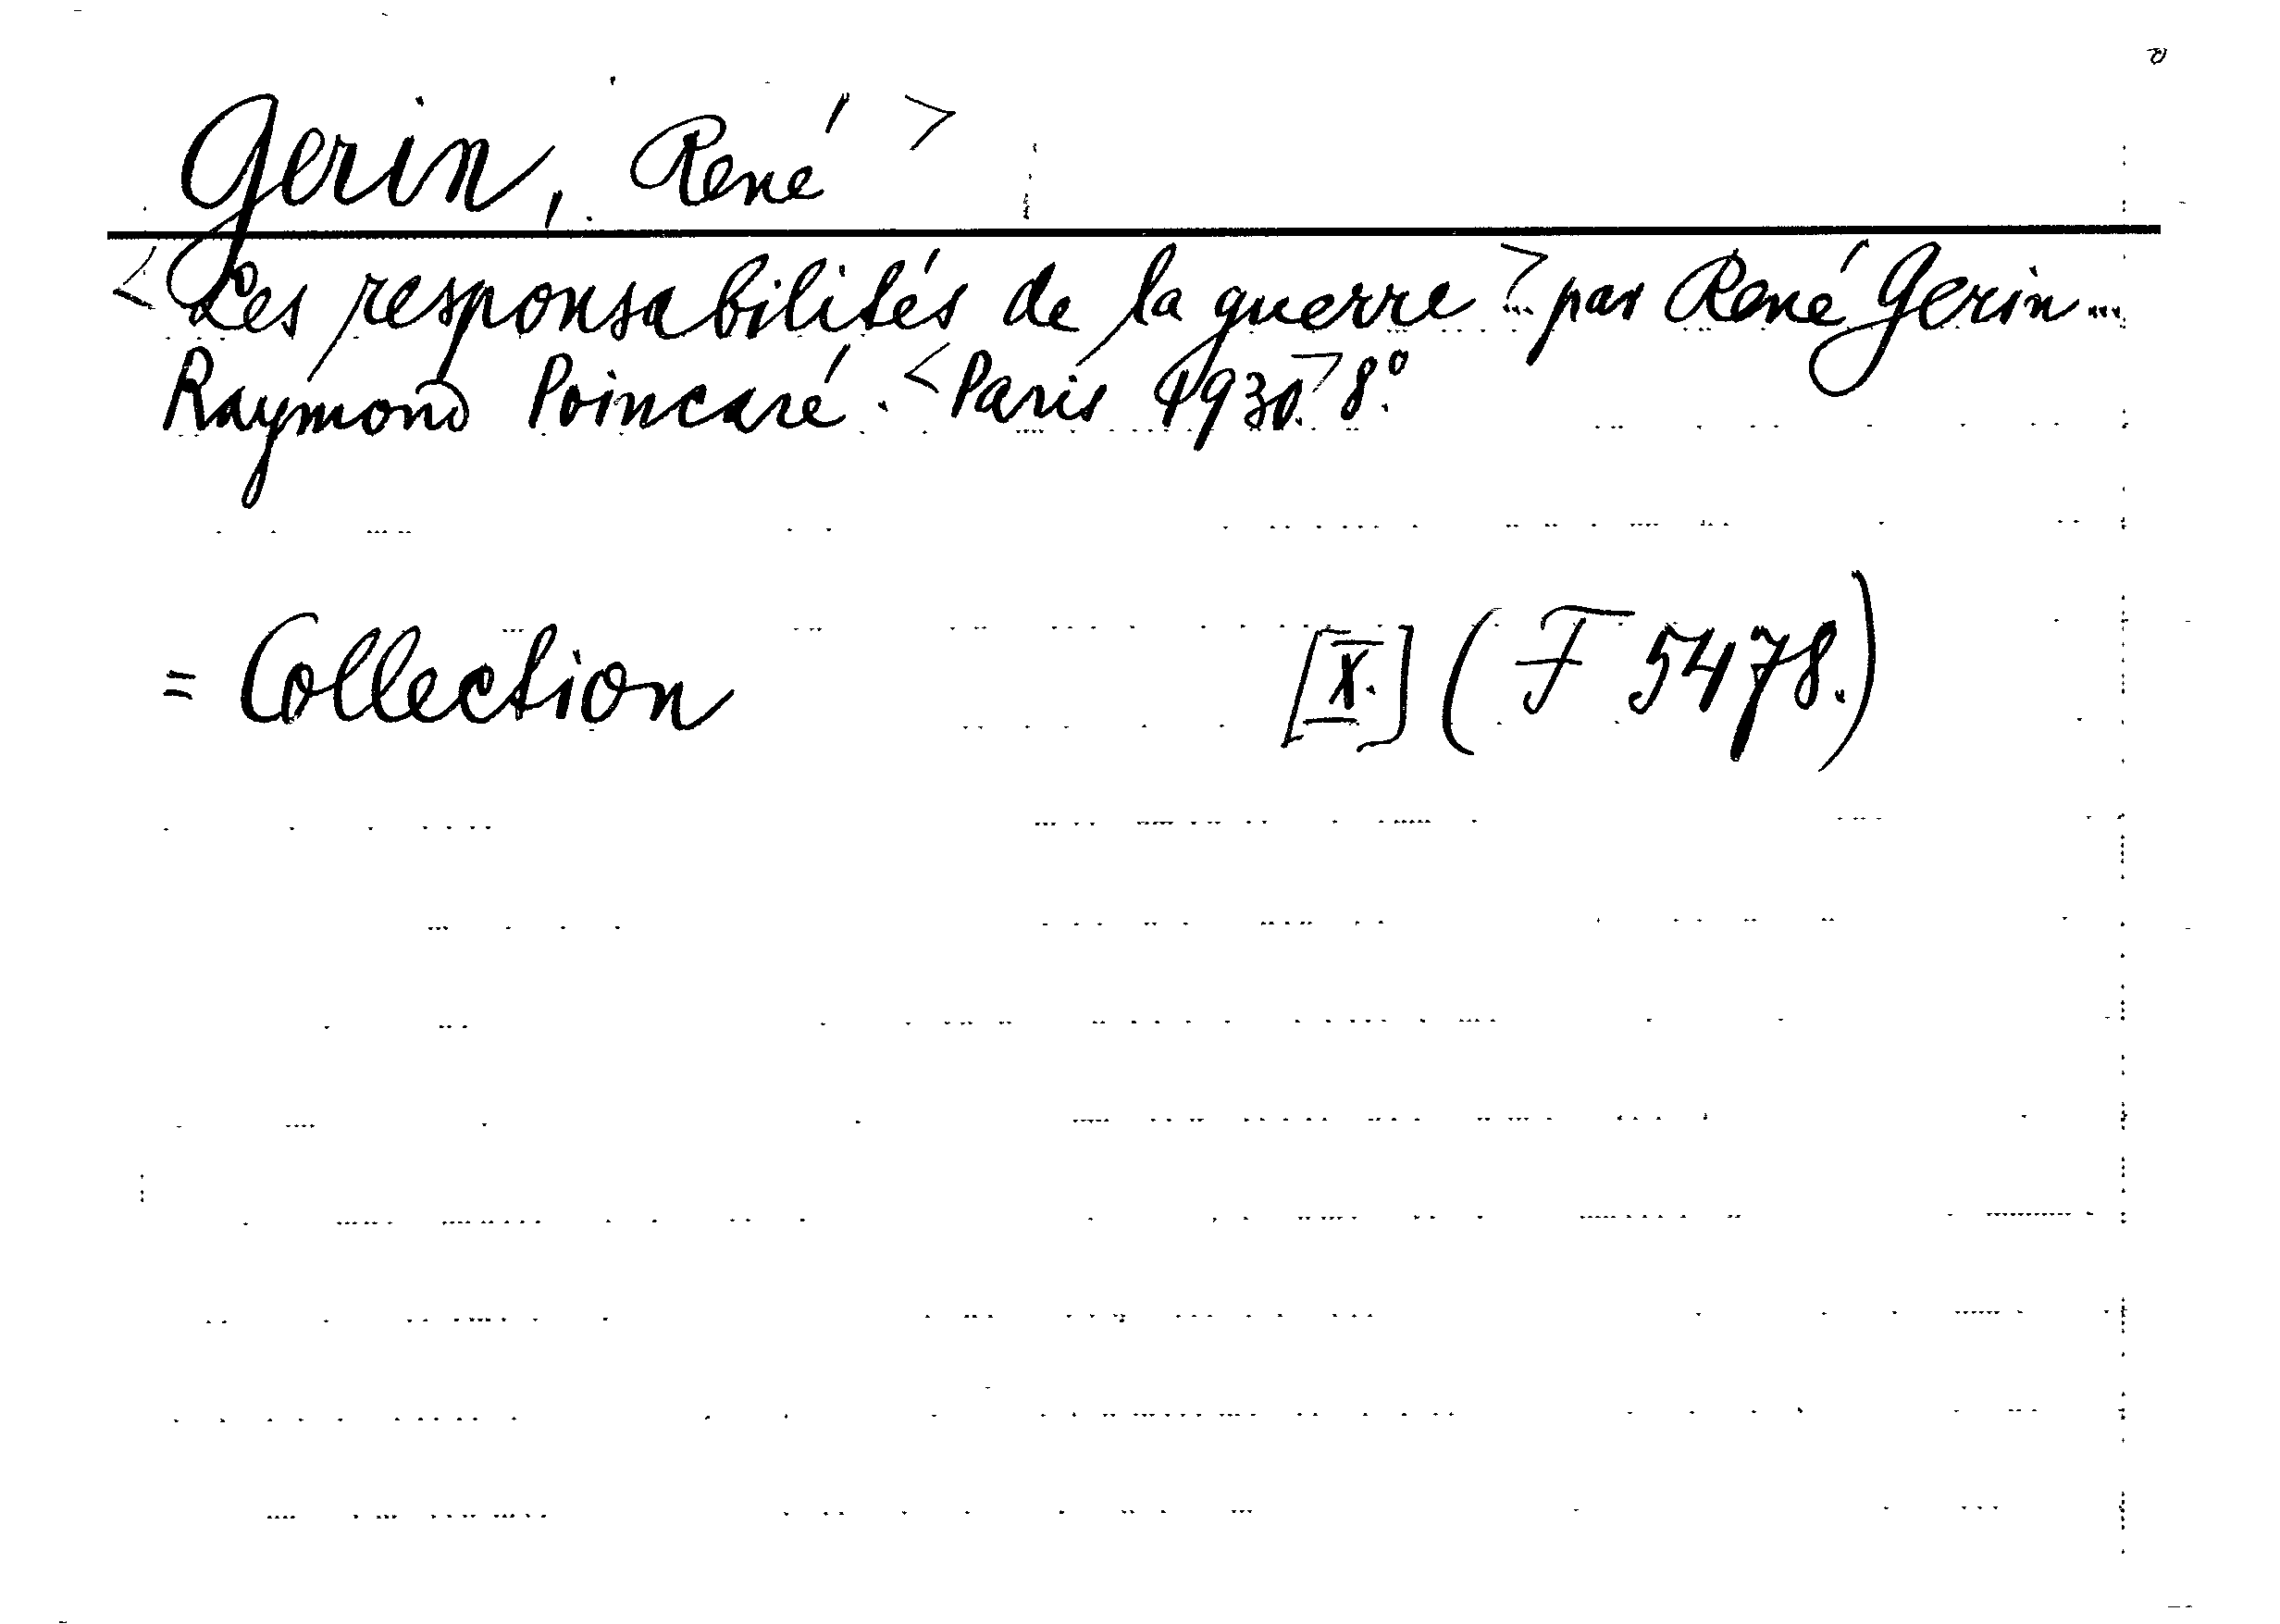 Gerin, René >
< Les responsabilités de la guerre > ... par René Gerin ...
Raymond Poincaré. < Paris 1930. > 8.°
= Collection [X.] (F 5478.)